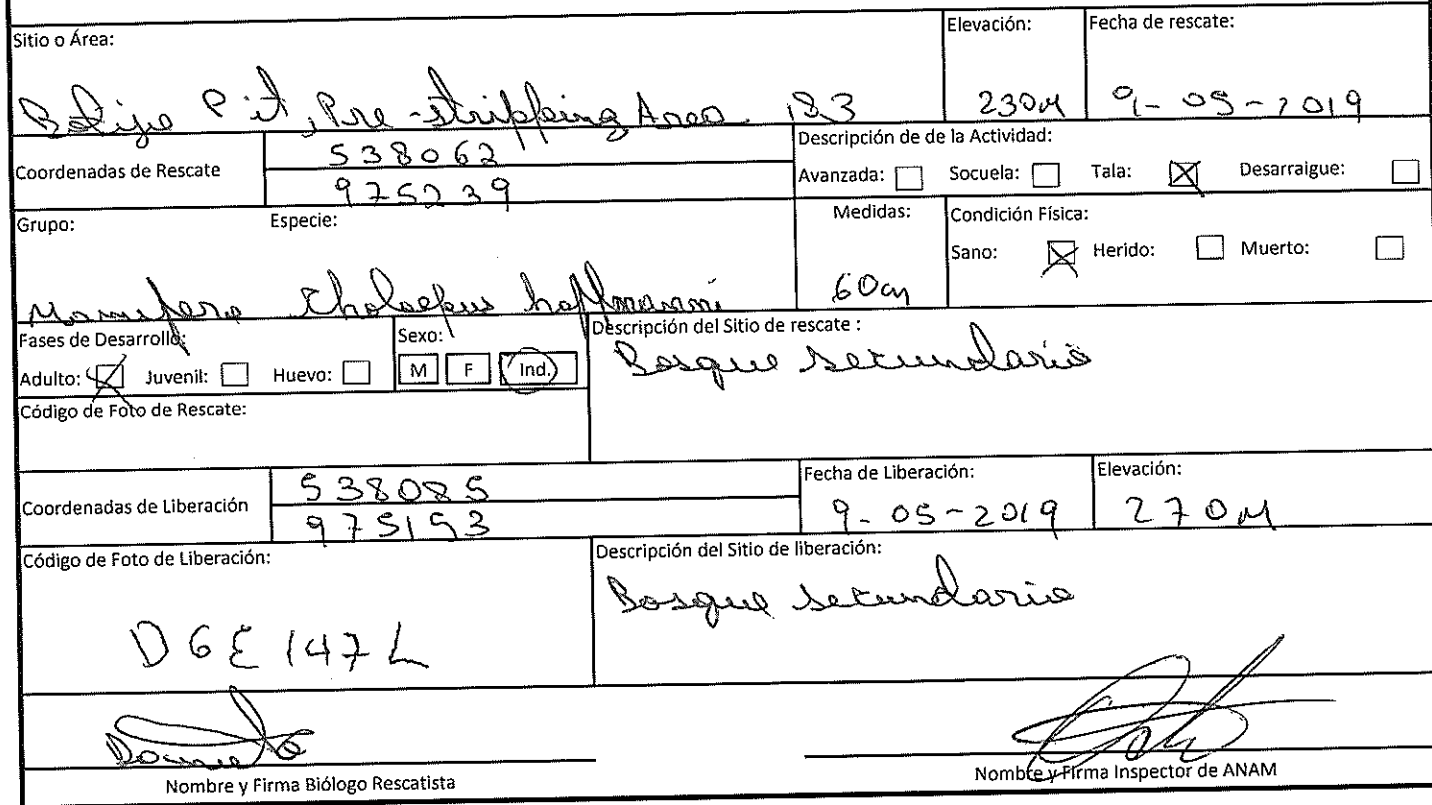 Sitio o Área:
Elevación:
Fecha de rescate:
Botija Pit, Pre-stripping Area 183
230M
9-05-2019
Coordenadas de Rescate
538062
975239
Descripción de de la Actividad:
Avanzada: Socuela: Tala: Desarraigue:
Grupo: Especie:
Medidas:
Condición Física:
Sano: Herido: Muerto:
Mamifero Choloepus hoffmanni
60cm
Fases de Desarrollo:
Adulto: Juvenil: Huevo:
Sexo:
M F Ind.
Descripción del Sitio de rescate :
Bosque secundario
Código de Foto de Rescate:
Coordenadas de Liberación
538085
975153
Fecha de Liberación:
9-05-2019
Elevación:
270M
Código de Foto de Liberación:
DGE147L
Descripción del Sitio de liberación:
Bosque secundario
Nombre y Firma Biólogo Rescatista
Nombre y Firma Inspector de ANAM